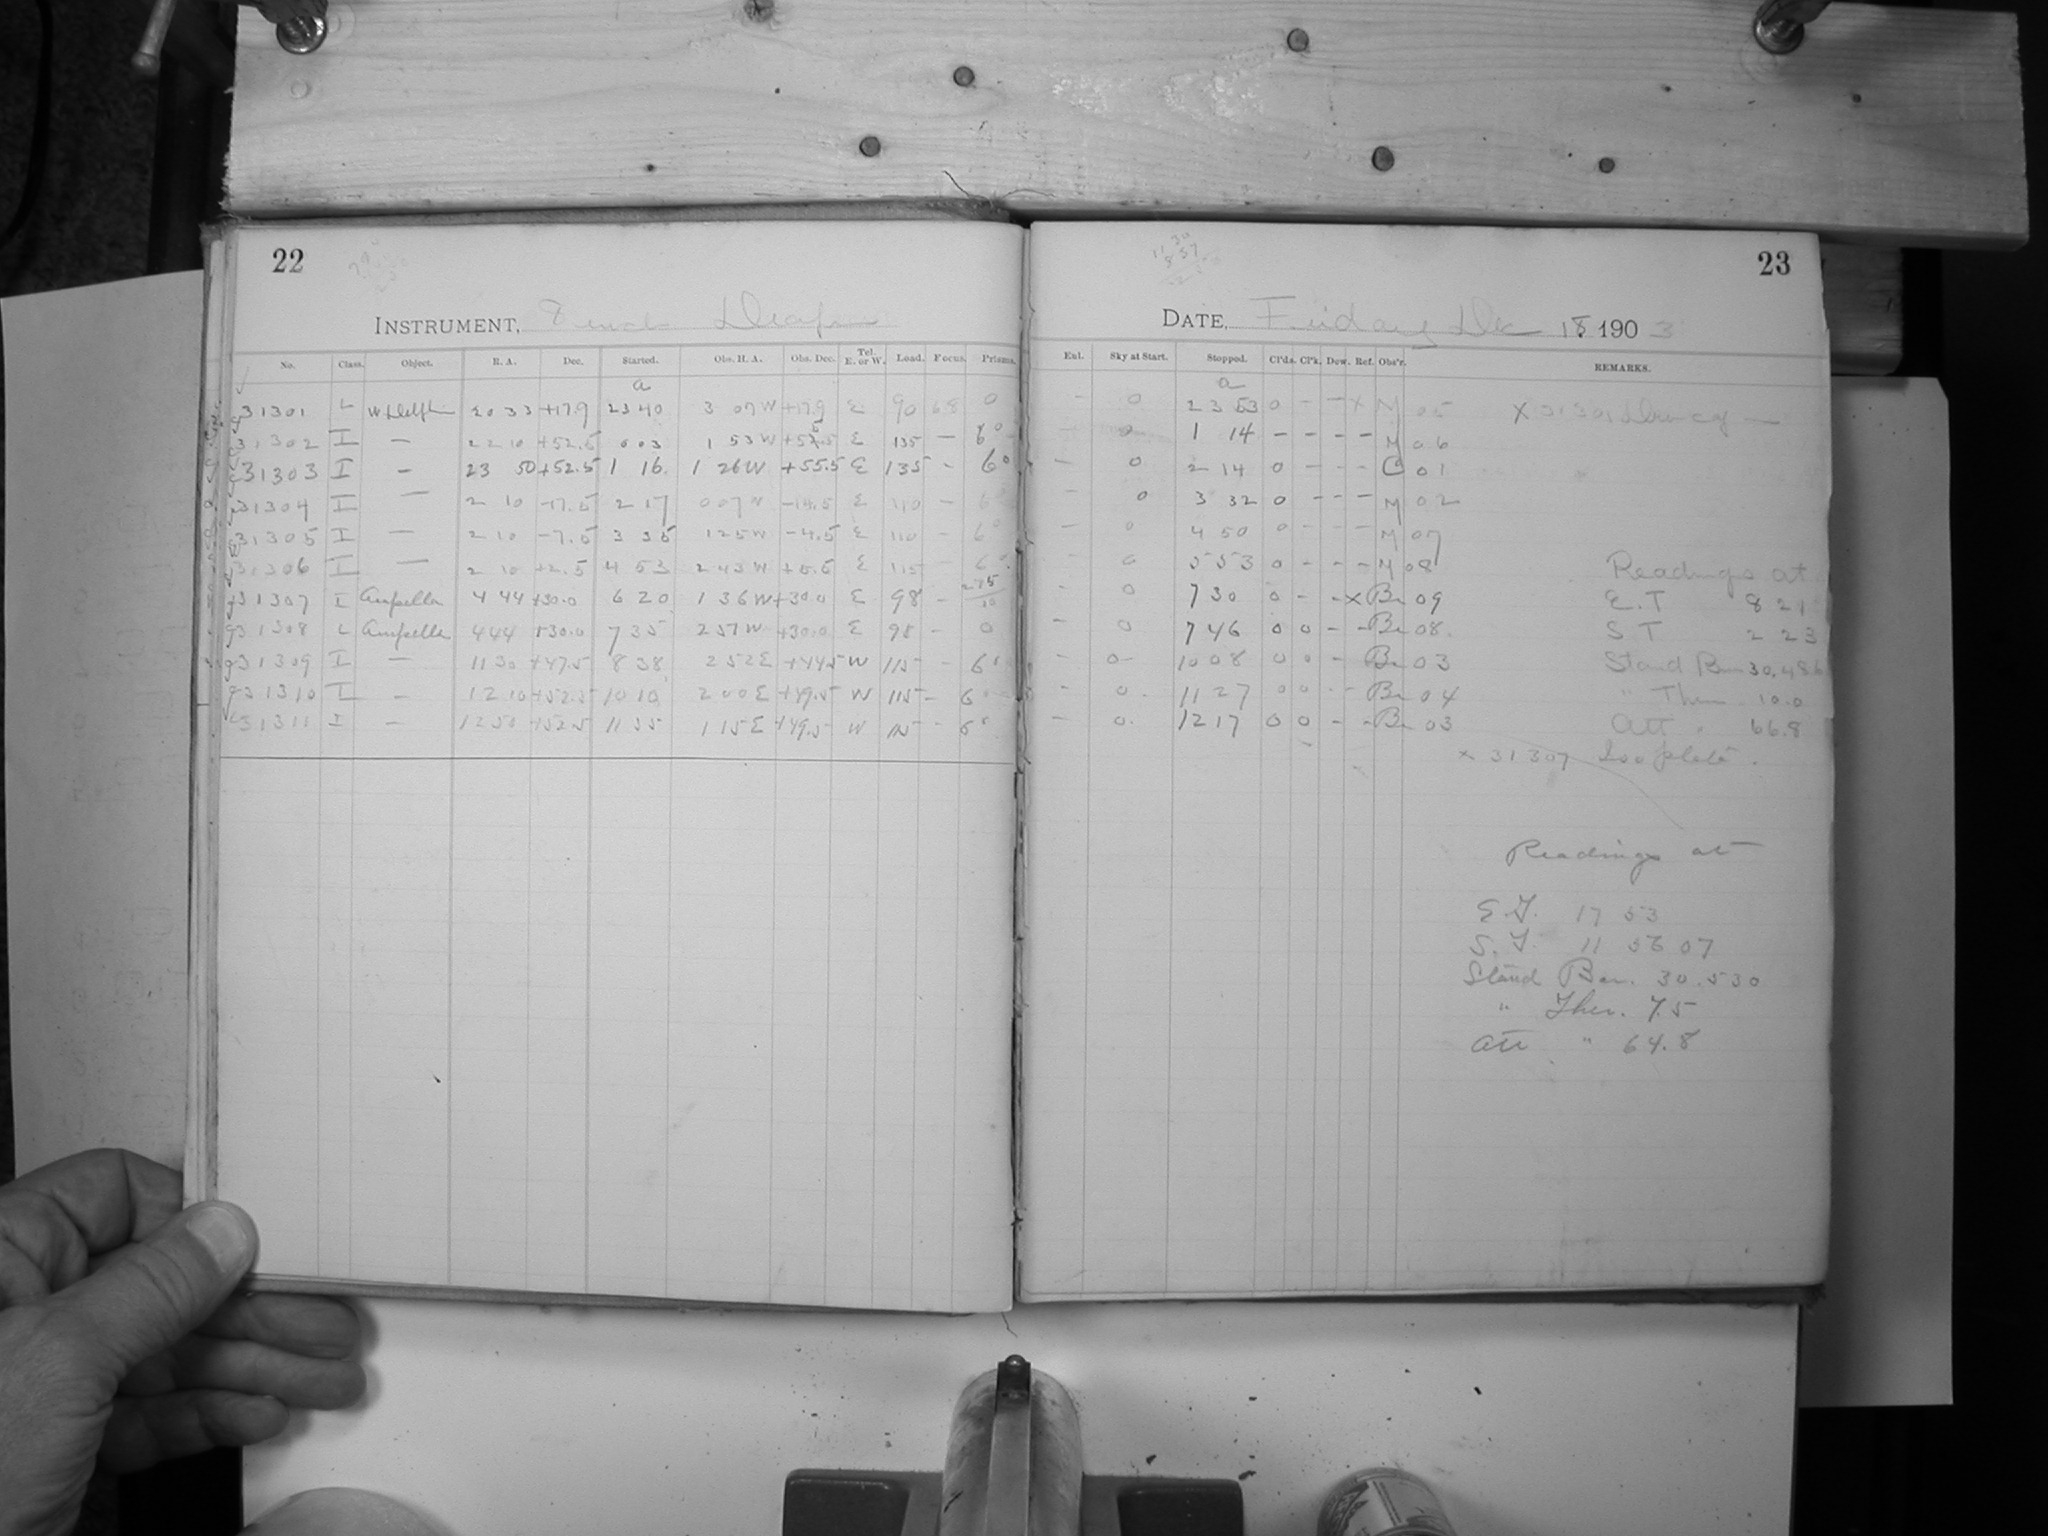 22
INSTRUMENT,
No. Class. Object. R. A. Dec. Started. Obs. H. A. Obs. Dec. Tel. E. or W. Load. Focus. Prisms.
a
31301 L W Delphin 20 33 +17.9 23 40 3 07 W +17.9 E 90 6.8 0
31302 I — 22 10 +52.5 0 03 1 53 W E 135 — 6°
31303 I — 23 50 +52.5 1 16 1 26 W +55.5 E 135 - 6°
31304 I — 2 10 -17.5 2 17 0 07 W -14.5 E 110 — 6°
31305 I — 2 10 -7.5 3 35 1 25 W -4.5 E 110 - 6°
31306 I — 2 10 +2.5 4 53 2 43 W +5.5 E 115 - 6°
31307 I 4 44 +30.0 6 20 1 36 W +30.0 E 98 -
31308 L 4 44 +30.0 7 35 2 57 W +30.0 E 98 - 0
31309 I — 11 30 +47.5 8 38 2 52 E +44.5 W 115 - 6°
31310 I — 12 10 +52.5 10 10 2 00 E +49.5 W 115 - 6°
31311 I — 12 50 +52.5 11 35 1 15 E +49.5 W 115 - 6°
23
DATE, Friday Dec 18 1903
Ent. Sky at Start. Stopped. Cl'ds. Cl'k. Dew. Ref. Obs'r. REMARKS.
a
- 0 23 53 0 - - x M 05 x 31301
- 0 1 14 - - - - M 06
- 0 2 14 0 - - - C 01
- 0 3 32 0 - - - M 02
- 0 4 50 0 - - - M 07
- 0 5 53 0 - - - M 08 Readings at
- 0 7 30 0 - - x Br 09 E. T 8 21
- 0 7 46 0 0 - - Br 08. S T 2 23
- 0 10 08 0 0 - Br 03 Stand Bar 30.486
- 0. 11 27 0 0 - - Br 04 " Ther 10.0
- 0. 12 17 0 0 - - Br 03 Att " 66.8
x 31307 Iso plate.
Readings at
E. T. 17 53
S. T. 11 56 07
Stand Bar. 30.530
" Ther. 7.5
Att " 64.8